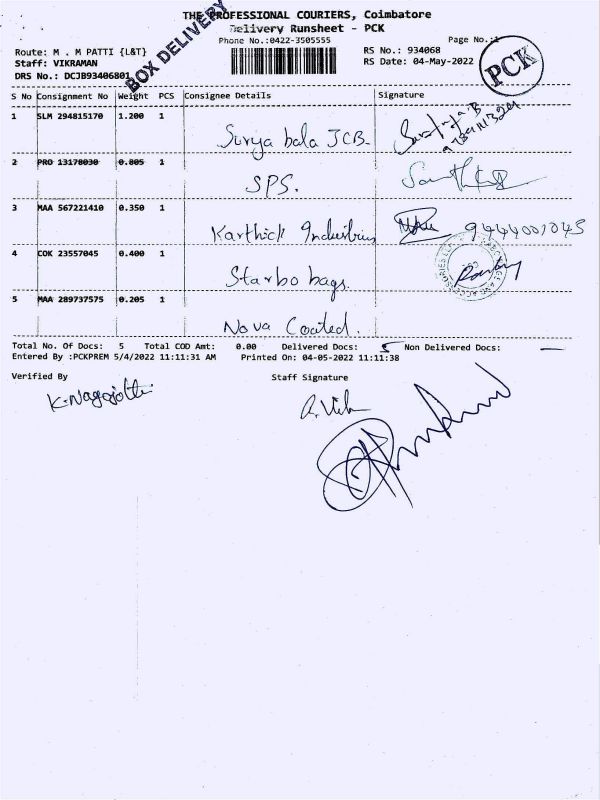 THE PROFESSIONAL COURIERS, Coimbatore
Delivery Runsheet - PCK
Phone No.:0422-3505555
BOX DELIVERY
Page No.:1
PCK
Route: M . M PATTI {L&T}
RS No.: 934068
Staff: VIKRAMAN
RS Date: 04-May-2022
DRS No.: DCJB93406801
S No Consignment No Weight PCS Consignee Details Signature
1 SLM 294815170 1.200 1
Surya bala JCB.
2 PRO 13178030 0.805 1
SPS.
3 MAA 567221410 0.350 1
Karthick Industries 9444001045
4 COK 23557045 0.400 1
Starbo bags.
5 MAA 289737575 0.205 1
Nova Coated.
Total No. Of Docs: 5 Total COD Amt: 0.00 Delivered Docs: 5 Non Delivered Docs: —
Entered By :PCKPREM 5/4/2022 11:11:31 AM Printed On: 04-05-2022 11:11:38
Verified By Staff Signature